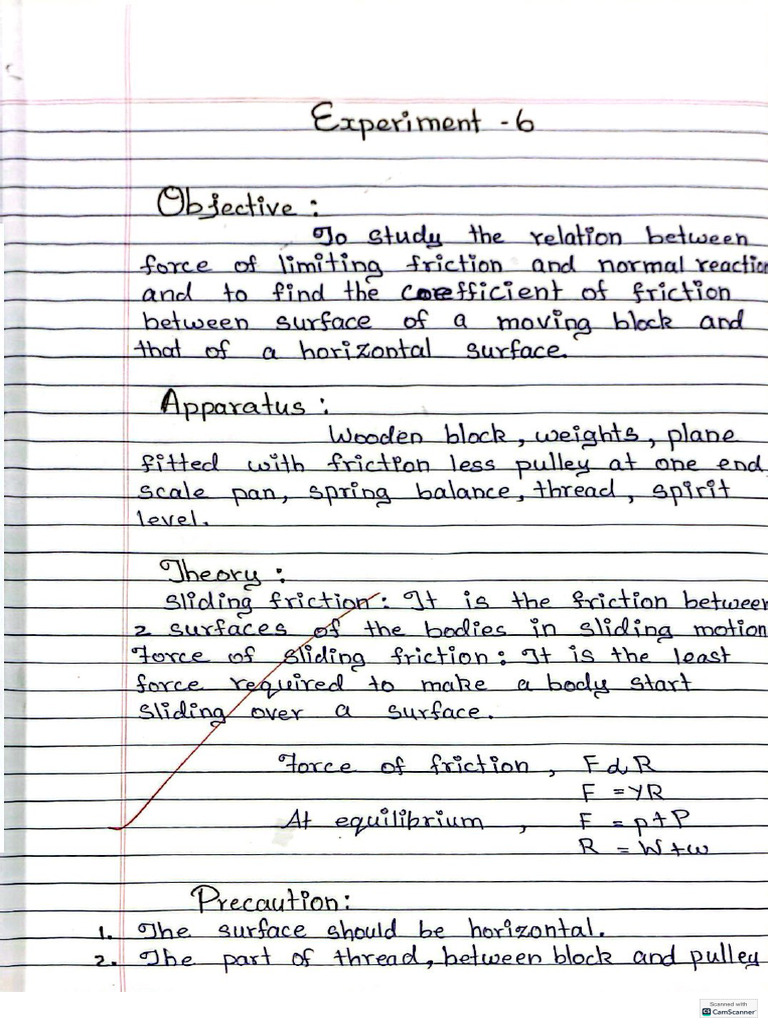 Experiment - 6
Objective :
To study the relation between
force of limiting friction and normal reaction
and to find the coefficient of friction
between surface of a moving block and
that of a horizontal surface.
Apparatus :
Wooden block, weights, plane
fitted with friction less pulley at one end
scale pan, spring balance, thread, spirit
level.
Theory :
Sliding friction : It is the friction between
2 surfaces of the bodies in sliding motion
Force of sliding friction : It is the least
force required to make a body start
sliding over a surface.
Force of friction , F α R
F = γR
At equilibrium , F = p+P
R = W+w
Precaution:
1. The surface should be horizontal.
2. The part of thread, between block and pulley
Scanned with
CS CamScanner